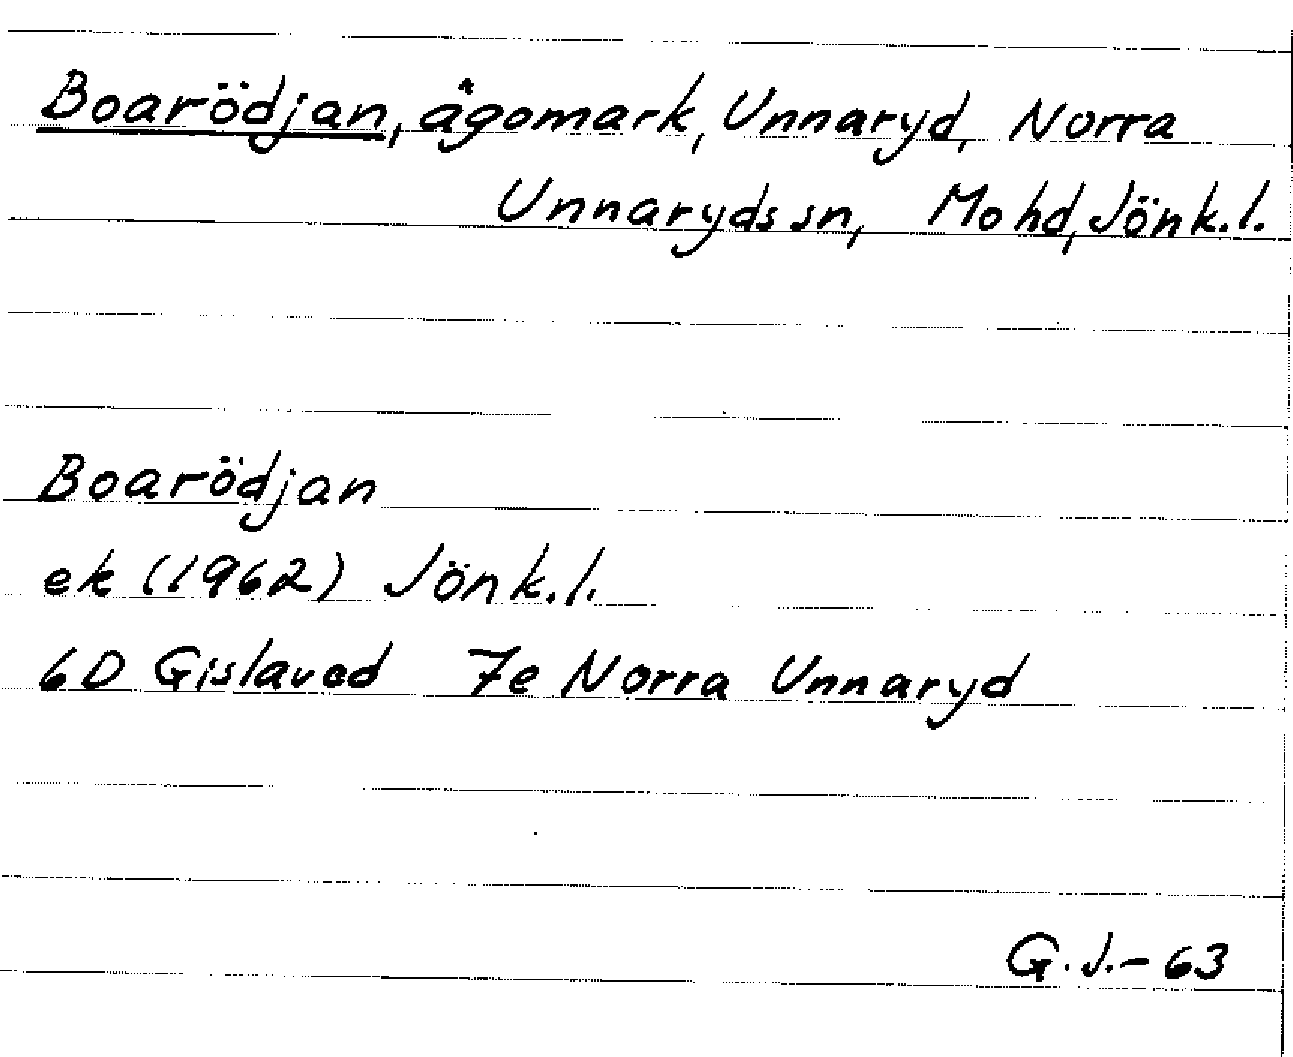 Boarödjan, ägomark, Unnaryd, Norra
Unnaryds sn, Mo hd, Jönk.l.
Boarödjan
ek (1962) Jönk.l.
6D Gislaved 7e Norra Unnaryd
G.J.-63